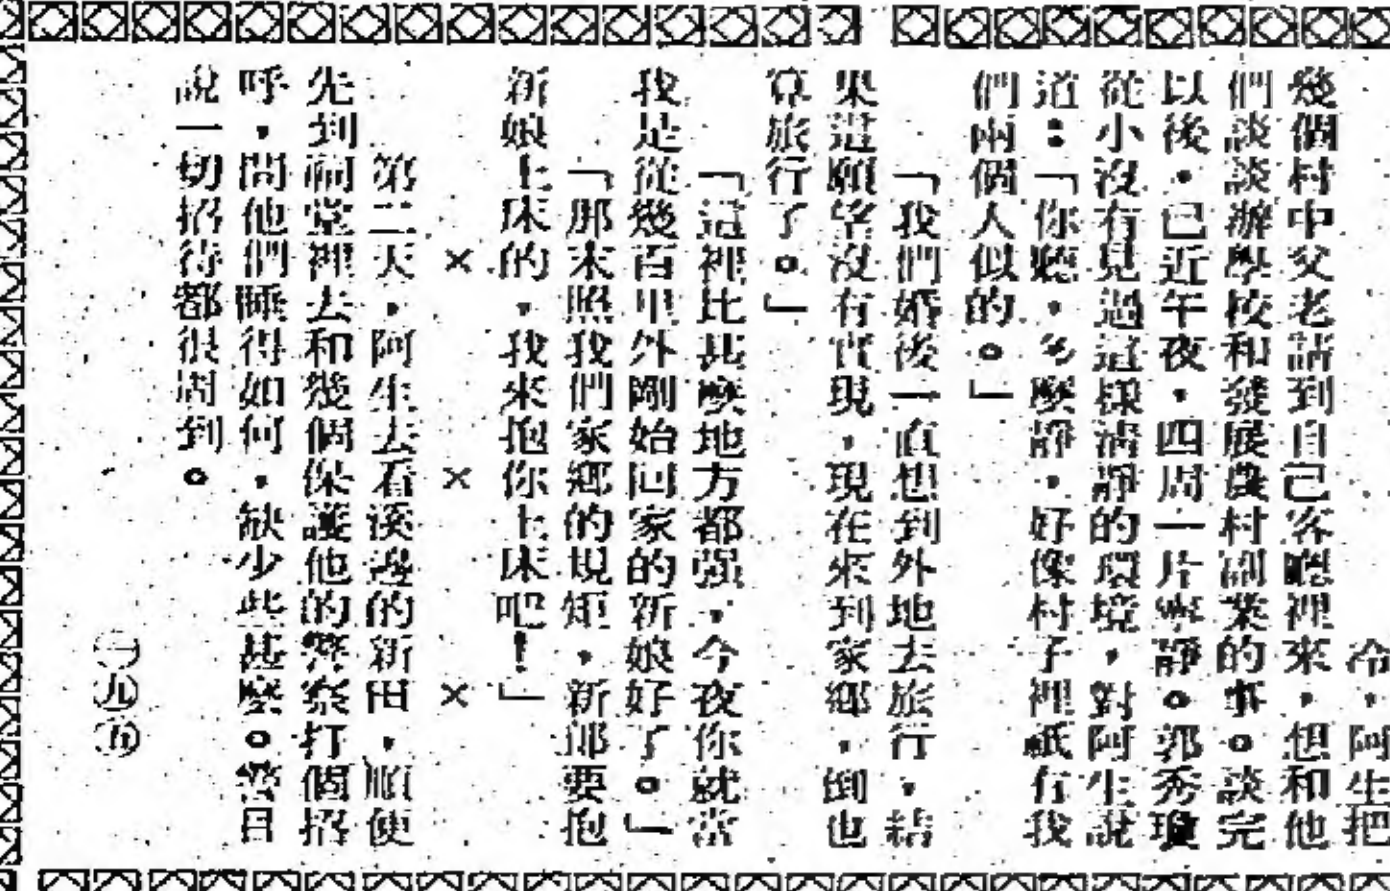 冷，阿生把
幾個村中父老請到自己客廳裡來，想和他
們談談辦學校和發展農村副業的事。談完
以後，已近午夜，四周一片寧靜。郭秀瓊
從小沒有見過這樣清靜的環境，對阿生說
道：「你聽，多麼靜，好像村子裡祇有我
們兩個人似的。」
「我們婚後一直想到外地去旅行，結
果這願望沒有實現，現在來到家鄉，倒也
算旅行了。」
「這裡比甚麼地方都强，今夜你就當
我是從幾百里外剛始回家的新娘好了。」
「那末照我們家鄉的規矩，新郎要抱
新娘上床的，我來抱你上床吧！」
×　×　×
第二天，阿生去看溪邊的新田，順便
先到祠堂裡去和幾個保護他的警察打個招
呼，問他們睡得如何，缺少些甚麼。警目
說一切招待都很周到。
一九五